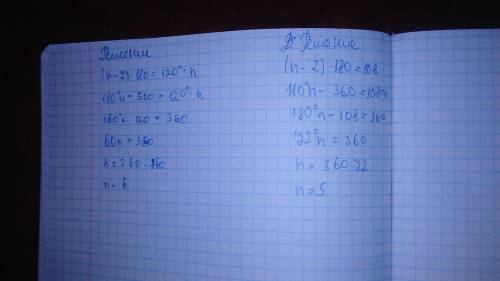 Решение
(n-2)·180=120°·n
180°n-360=120°·n
180°n-120=360
60n=360
n=360:360
n=6
Решение
(n-2)·180=108
180°n-360=108n
180°n-108=360
72°n=360
n=360:72
n=5